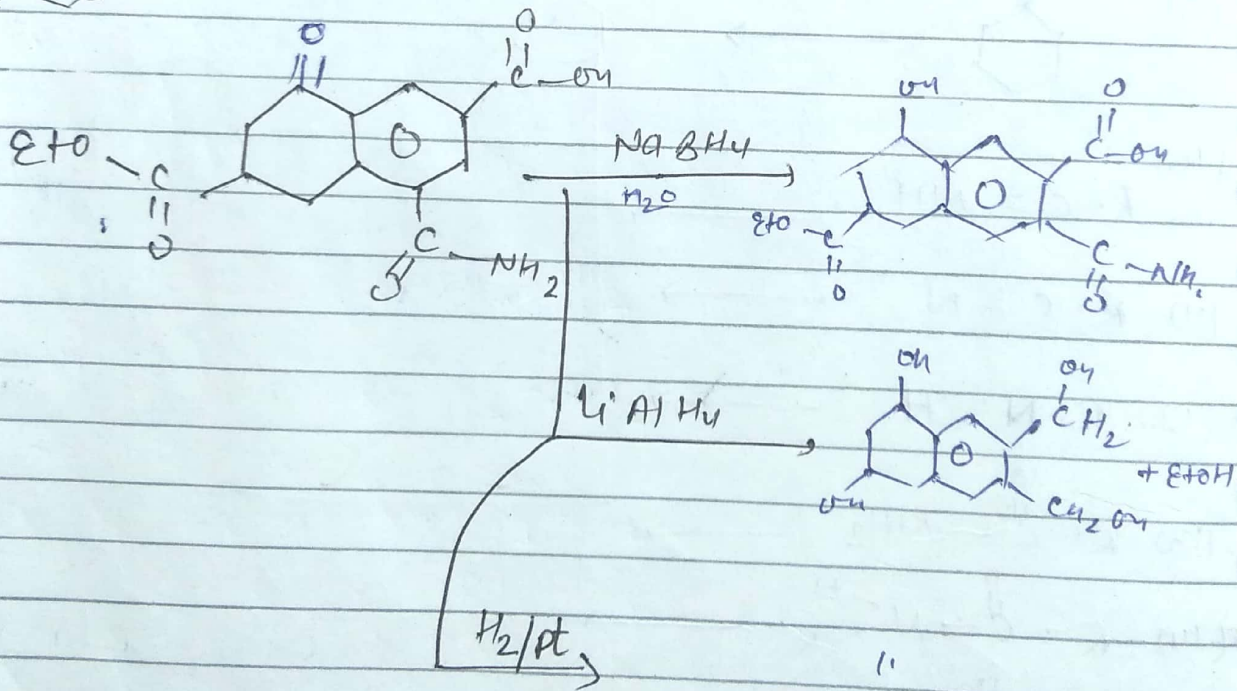 O
O
C—OH
EtO
C
O
O
C—NH2
O
NaBH4
H2O
OH
O
C—OH
O
EtO
C
O
C—NH2
O
LiAlH4
OH
OH
CH2
O
+ EtOH
OH
CH2OH
H2/pt
"